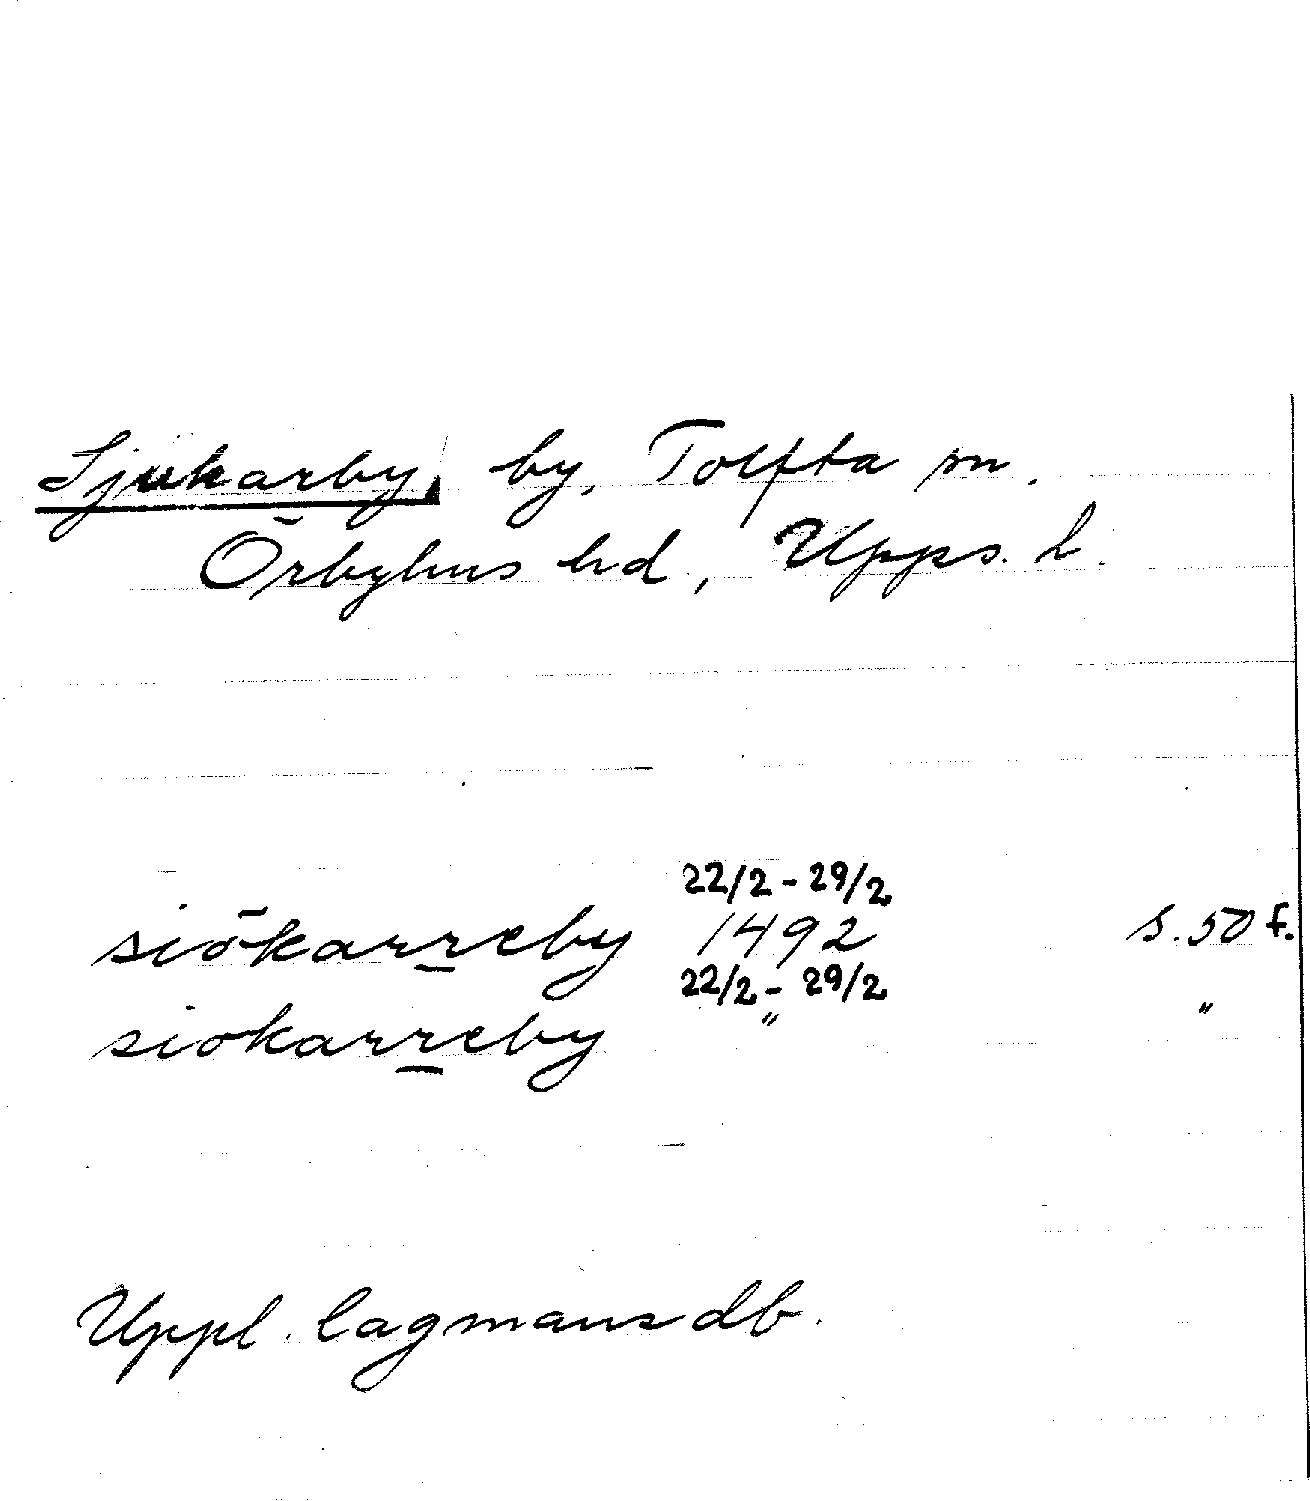 Sjukarby, by, Tolfta sn.
Örbyhus hd, Upps. l.
22/2 - 29/2
siökarreby 1492 s. 50 f.
22/2 - 29/2
siokarreby " "
Uppl. lagmansdb.